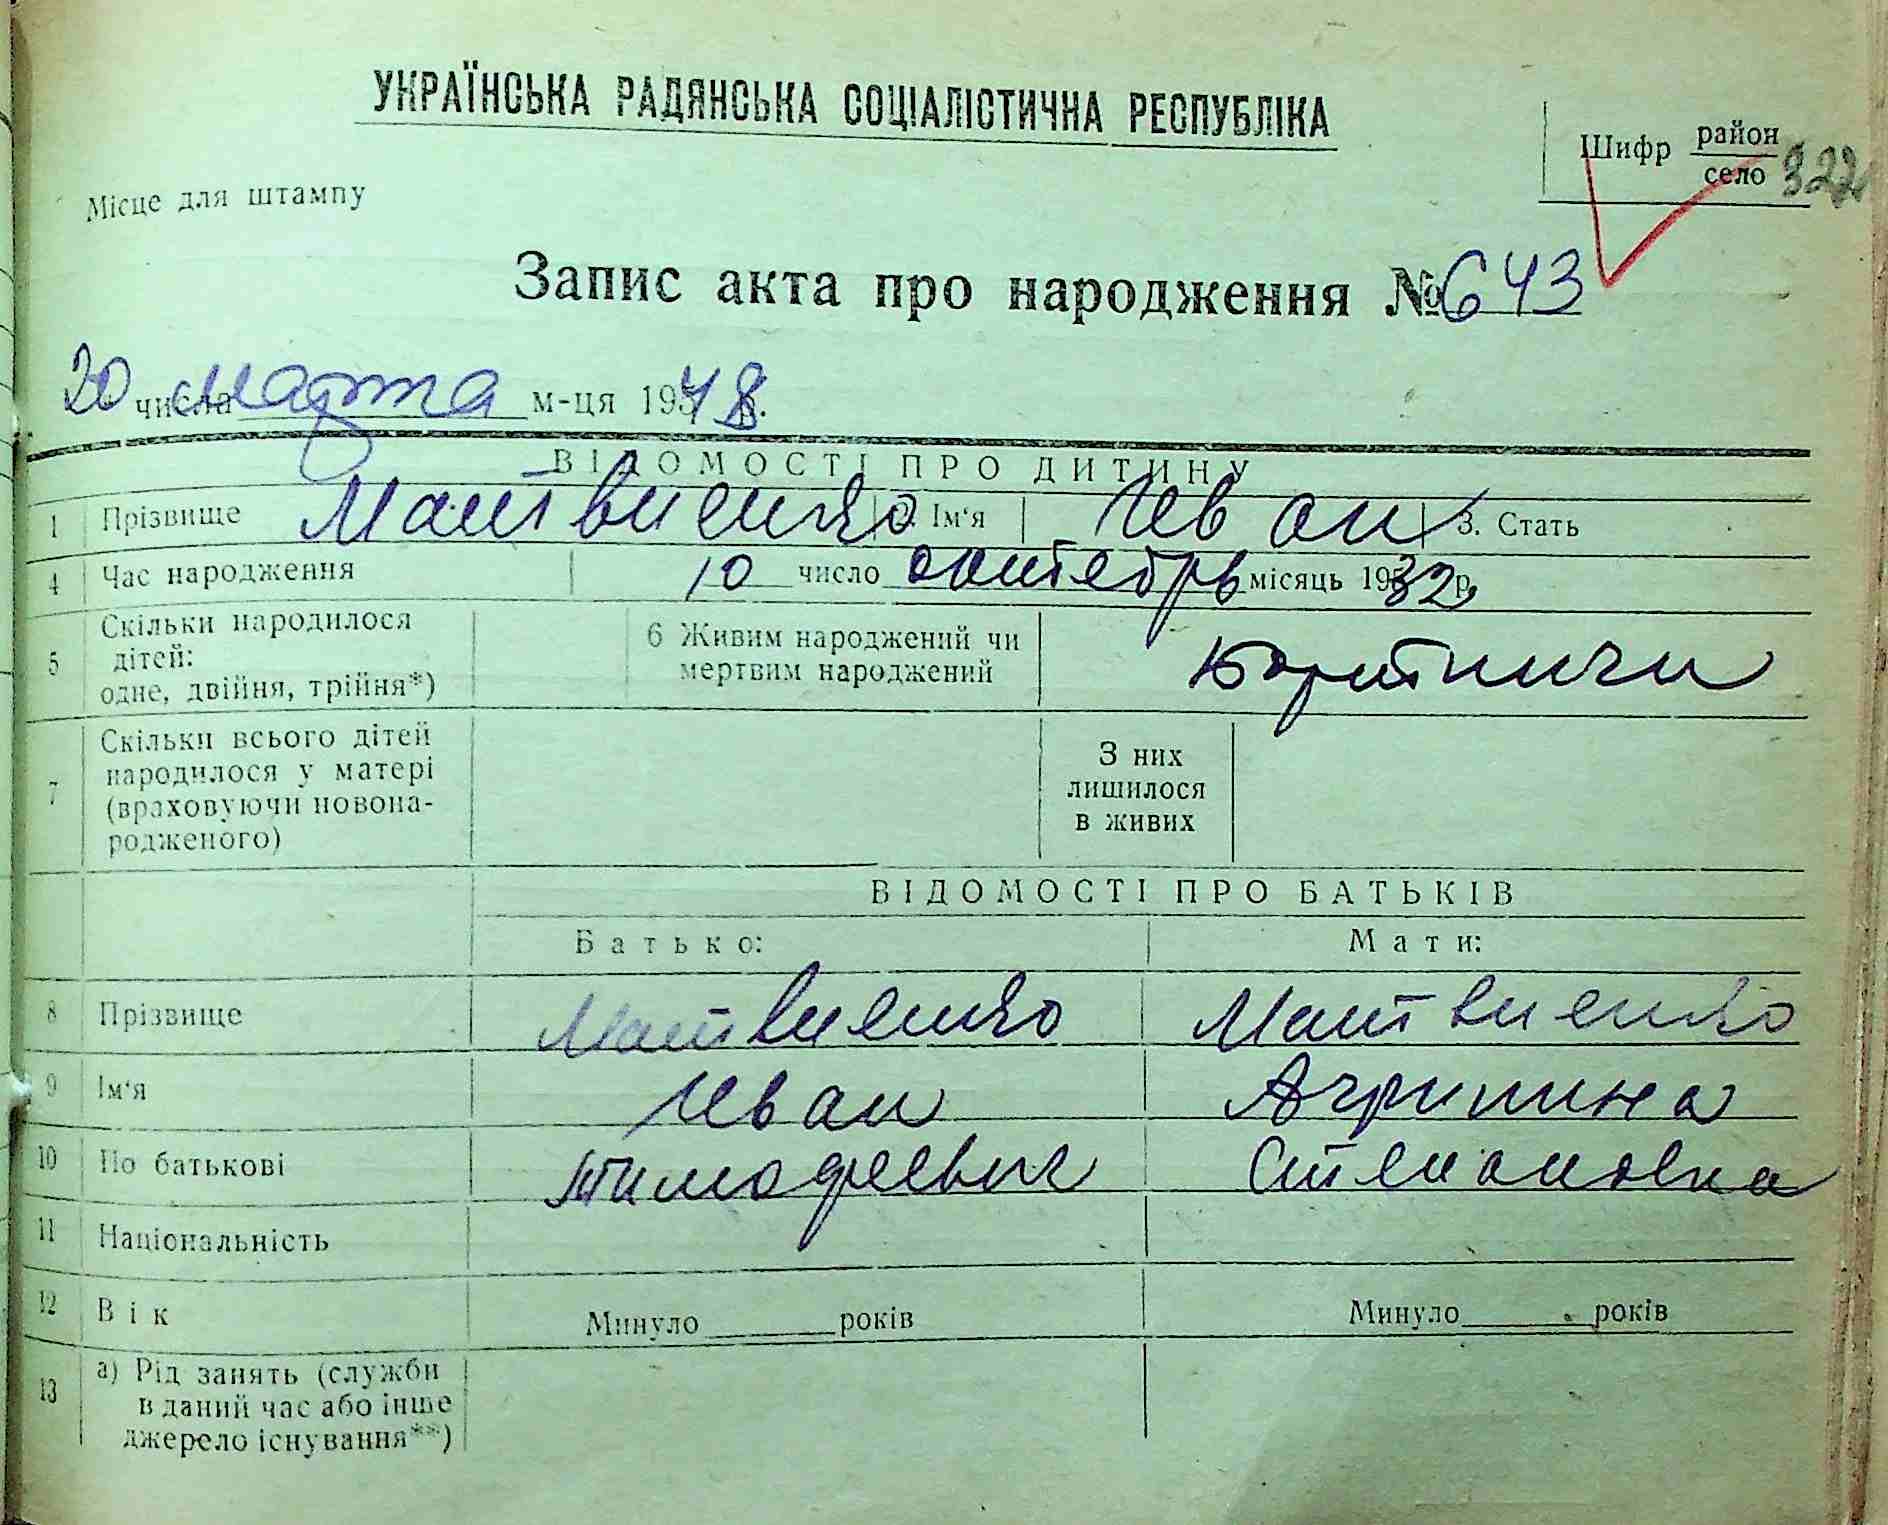 УКРАЇНСЬКА РАДЯНСЬКА СОЦІАЛІСТИЧНА РЕСПУБЛІКА
Шифр район
село 322
Місце для штампу
Запис акта про народження № 643
20 числа марта м-ця 1948 р.
ВІДОМОСТІ ПРО ДИТИНУ
1 Прізвище Матвиенко 2. Ім'я Иван 3. Стать
4 Час народження 10 число сентебрь місяць 1932 р.
5 Скільки народилося
дітей:
одне, двійня, трійня*)
6 Живим народжений чи
мертвим народжений
7 Скільки всього дітей
народилося у матері
(враховуючи новона-
родженого)
З них
лишилося
в живих
ВІДОМОСТІ ПРО БАТЬКІВ
Батько: Мати:
8 Прізвище Матвиенко Матвиенко
9 Ім'я Иван Агрипина
10 По батькові Тимофеевич Степановна
11 Національність
12 Вік Минуло років Минуло років
13 а) Рід занять (служби
в даний час або інше
джерело існування**)